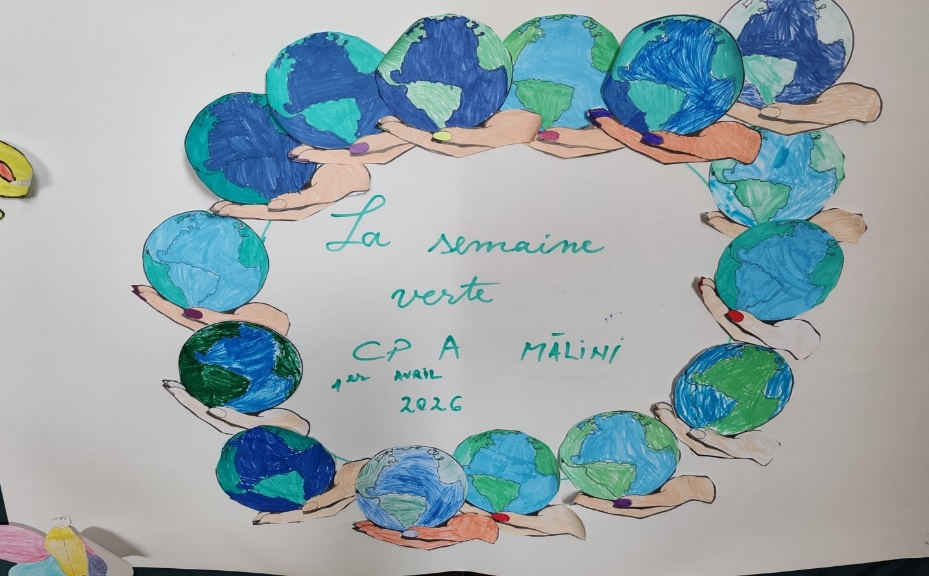 La semaine
verte
CP A MĀLINI
1er AVRIL
2026